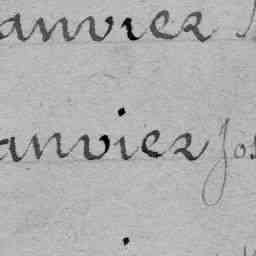 anvier
anvier Jos